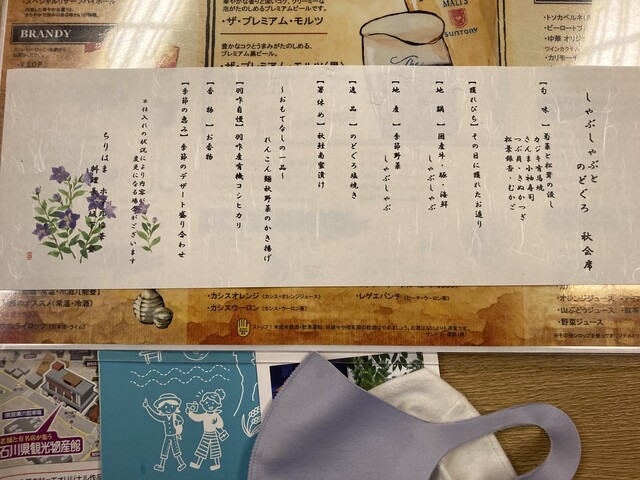 しゃぶしゃぶと
のどぐろ 秋会席
【旬味】菊菜と松茸の浸し
カジキ有馬焼
さんま小袖寿司
つぶ貝・きぬかつぎ
松葉銀杏・きむかご
【獲れぴち】その日に獲れたお造り
【地鍋】国産牛・豚・海鮮
しゃぶしゃぶ
【地産】季節野菜
しゃぶしゃぶ
【逸品】のどぐろ塩焼き
【箸休め】秋鮭南蛮漬け
～おもてなしの一品～
れんこん麺秋野菜のかき揚げ
【羽咋自慢】羽咋産有機コシヒカリ
【香物】お香物
【季節の恵み】季節のデザート盛り合わせ
※仕入れの状況により内容が
変更になる場合がございます
ちりはま
料理長
BRANDY
V.S.O.P
泡がたのしめるプレミアムビールです。
・ザ・プレミアム・モルツ
豊かなコクとうまみがたのしめる、
プレミアム黒ビール。
MALT'S
SUNTORY
The
・トソカベルネ
・ビーロート
・カシスオレンジ（カシス・オレンジジュース）
・カシスウーロン（カシス・ウーロン茶）
・レゲエパンチ（ピーチ・ウーロン茶）
オレンジジュース
・山ぶどうジュース
・野菜ジュース
老舗と有名店が集う
石川県観光物産館